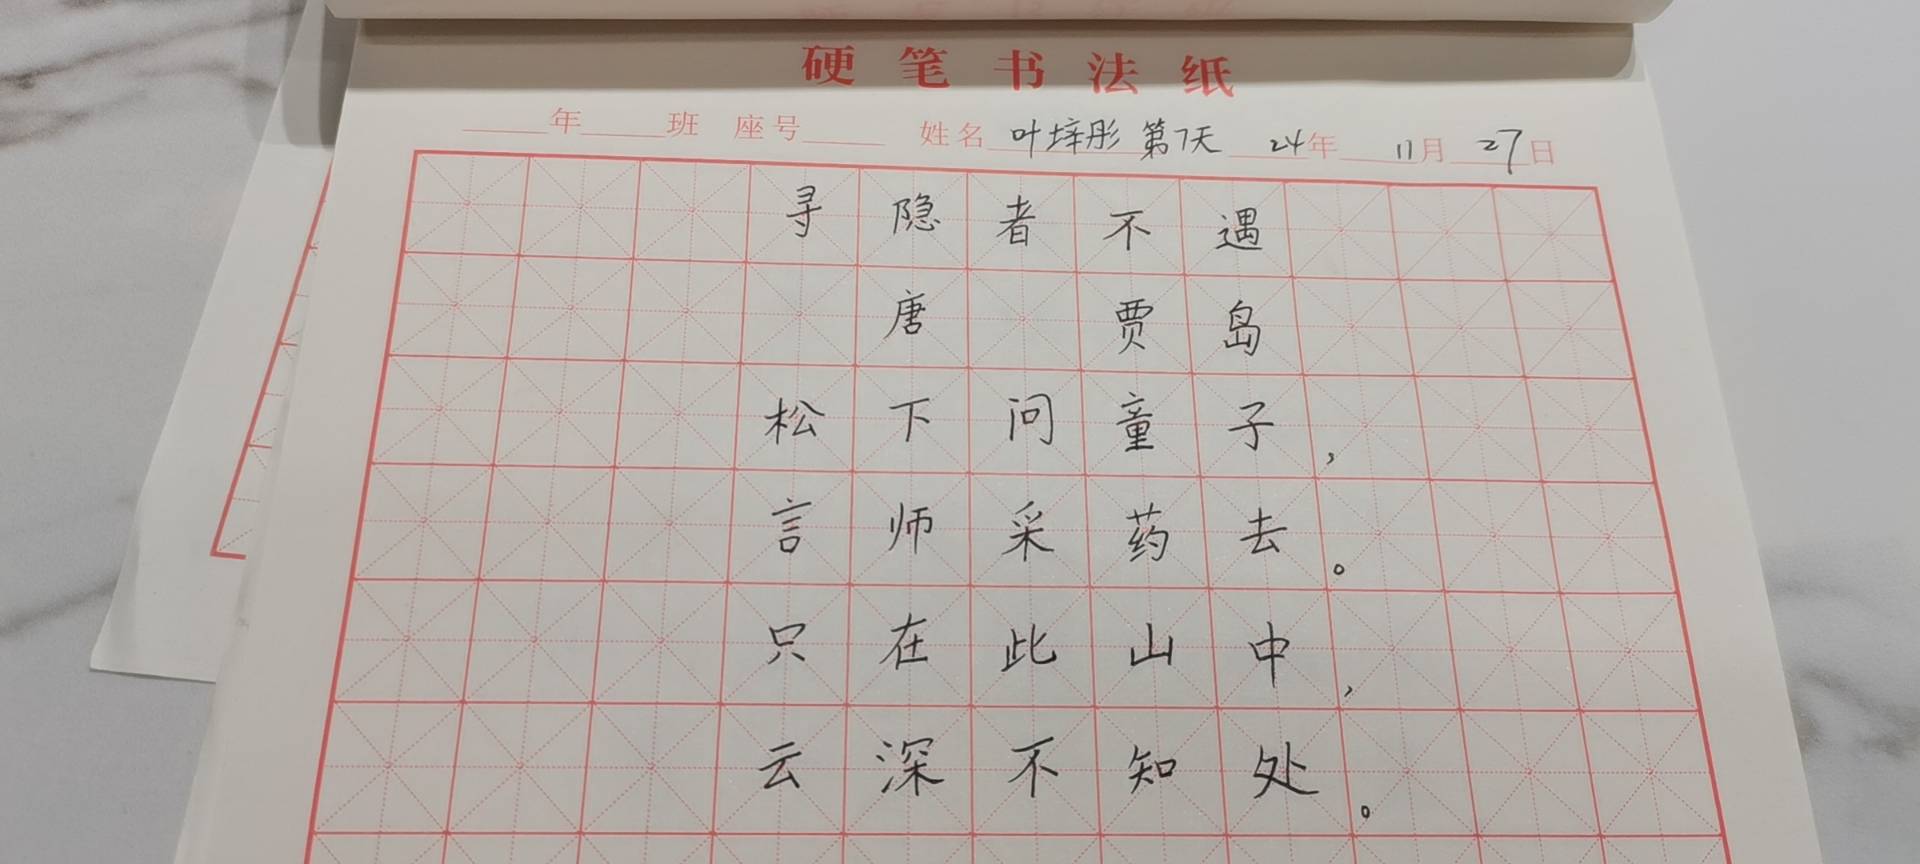 硬笔书法纸
年 班 座号 姓名 叶梓彤 第7天 24年 11月 27日
寻隐者不遇
唐 贾岛
松下问童子，
言师采药去。
只在此山中，
云深不知处。